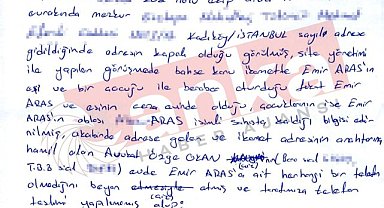 evrakında mezkur
Kadıköy/İSTANBUL sayılı adrese
gidildiğinde adresin kapalı olduğu görülmüş, site yönetimi
ile yapılan görüşmede bahse konu ikamette Emir ARAS'ın
eşi ve bir çocuğu ile beraber oturduğu fakat Emir
ARAS ve eşinin ceza evinde olduğu, çocuklarının ise Emir
ARAS'ın ablası ARAS isimli şahısta kaldığı bilgisi edi-
nilmiş, akabinde adrese gelen ve ikamet adresinin anahtarını
hamil olan Avukat Özge OKAN
T.B.B sicil evde Emir ARAS'a ait herhangi bir telefon
olmadığını beyan etmesiyle etmiş ve tarafımıza telefon
teslimi yapılmamış